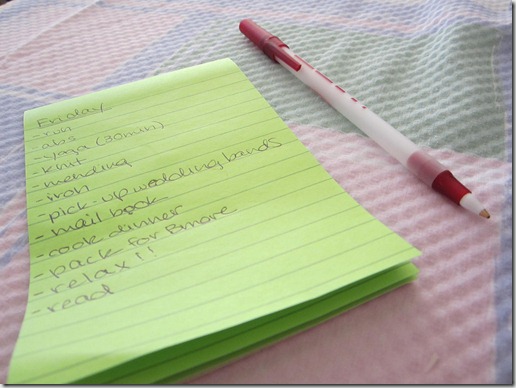 Friday
- run
- abs
- yoga (30min)
- knit
- mending
- iron
- pick-up wedding bands
- mail book
- cook dinner
- pack for Bmore
- relax!!
- read